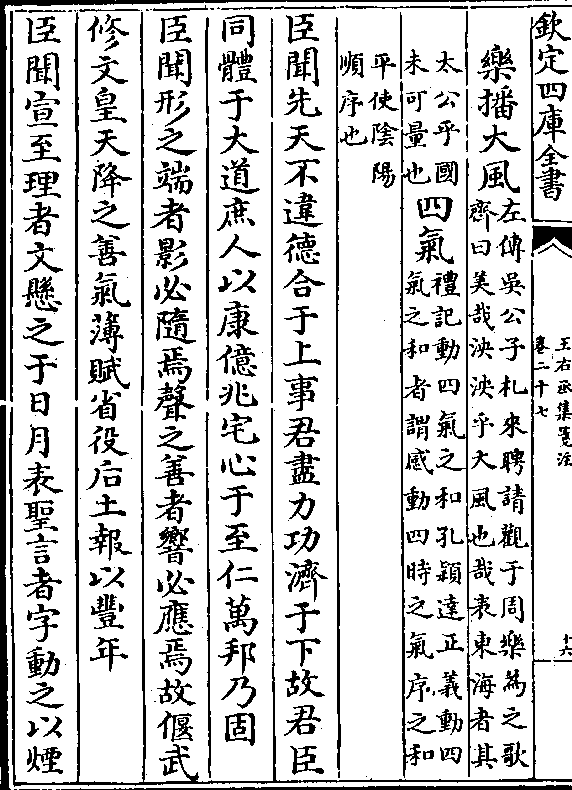 欽定四庫全書
王右丞集箋注
卷二十七
十六
樂播大風左傳吳公子札來聘請觀于周樂為之歌
齊曰美哉泱泱乎大風也哉表東海者其
太公乎國
未可量也四氣禮記動四氣之和孔穎達正義動四
氣之和者謂感動四時之氣序之和
平使陰陽
順序也
臣聞先天不違德合于上事君盡力功濟于下故君臣
同體于大道庶人以康億兆宅心于至仁萬邦乃固
臣聞形之端者影必隨焉聲之善者響必應焉故偃武
修文皇天降之善氣薄賦省役后土報以豐年
臣聞宣至理者文懸之于日月表聖言者字動之以煙